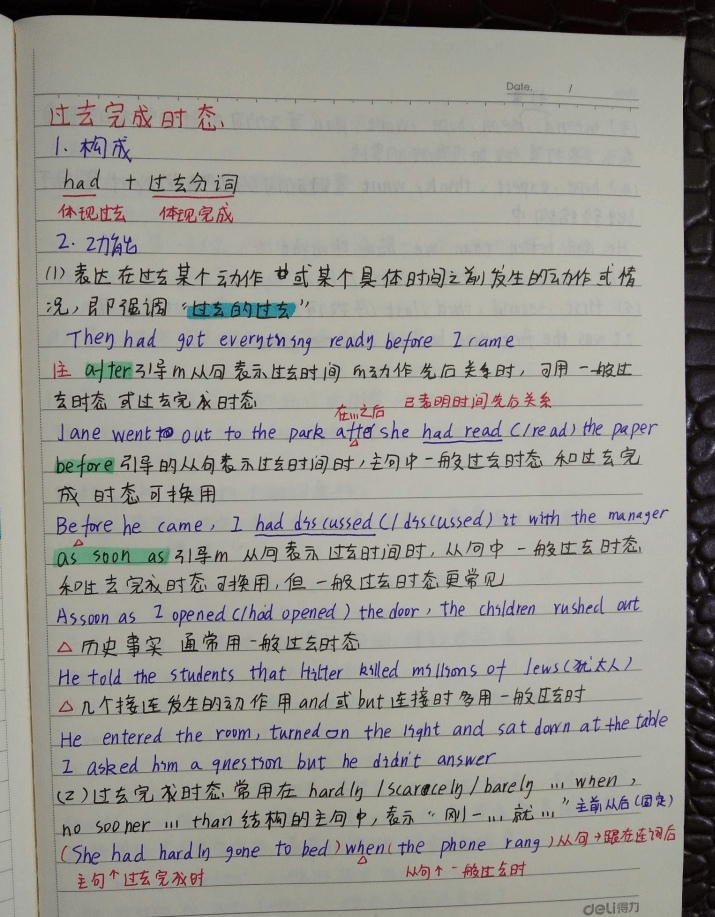 Date. /
过去完成时态
1. 构成
had + 过去分词
体现过去 体现完成
2. 功能
(1) 表达在过去某个动作或某个具体时间之前发生的动作或情
况，即强调“过去的过去”
They had got everything ready before I came
注 after引导的从句表示过去时间的动作先后关系时，可用一般过
去时态或过去完成时态
在...之后 已表明时间先后关系
Jane went to out to the park after she had read (/read) the paper
before引导的从句表示过去时间时，主句中一般过去时态和过去完
成时态可换用
Before he came, I had discussed (/discussed) it with the manager
as soon as引导的从句表示过去时间时，从句中一般过去时态
和过去完成时态可换用，但一般过去时态更常见
As soon as I opened (/had opened) the door, the children rushed out
△ 历史事实通常用一般过去时态
He told the students that Hitler killed millions of Jews (犹太人)
△ 几个接连发生的动作用and或but连接时多用一般过去时
He entered the room, turned on the light and sat down at the table
I asked him a question but he didn't answer
(2) 过去完成时态常用在hardly /scaracely/barely ... when,
no sooner ... than结构的主句中，表示“刚一...就...” 主前从后(固定)
(She had hardly gone to bed) when (the phone rang) 从句→跟在连词后
主句↑过去完成时 从句↑一般过去时
deli得力